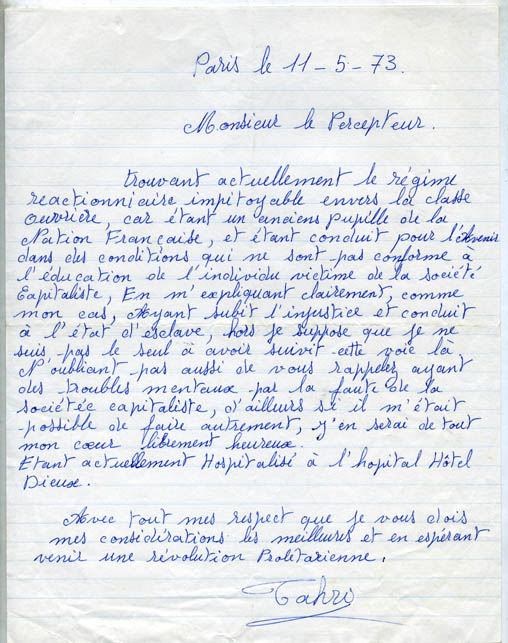 Paris le 11-5-73.
Monsieur le Percepteur.
trouvant actuellement le régime
reactionniaire impitoyable envers la classe
ouvrière, car étant un anciens pupille de la
Nation Française, et étant conduit pour l'Avenir
dans des conditions qui ne sont pas conforme à
l'éducation de l'individu victime de la société
Capitaliste, En m'expliquant clairement, comme
mon cas, Ayant subit l'injustice et conduit
à l'état d'esclave, hors je suppose que je ne
suis pas le seul à avoir suivit cette voie là
N'oubliant pas aussi de vous rappeler, ayant
des troubles mentaux par la faute de la
sociétée capitaliste, d'ailleurs si il m'était
possible de faire autrement, j'en serai de tout
mon cœur librement heureux.
Etant actuellement Hospitalisé à l'hopital Hôtel
Dieux.
Avec tout mes respect que je vous dois
mes considérations les meilleures et en espérant
venir une révolution Prolétarienne.
Tahri